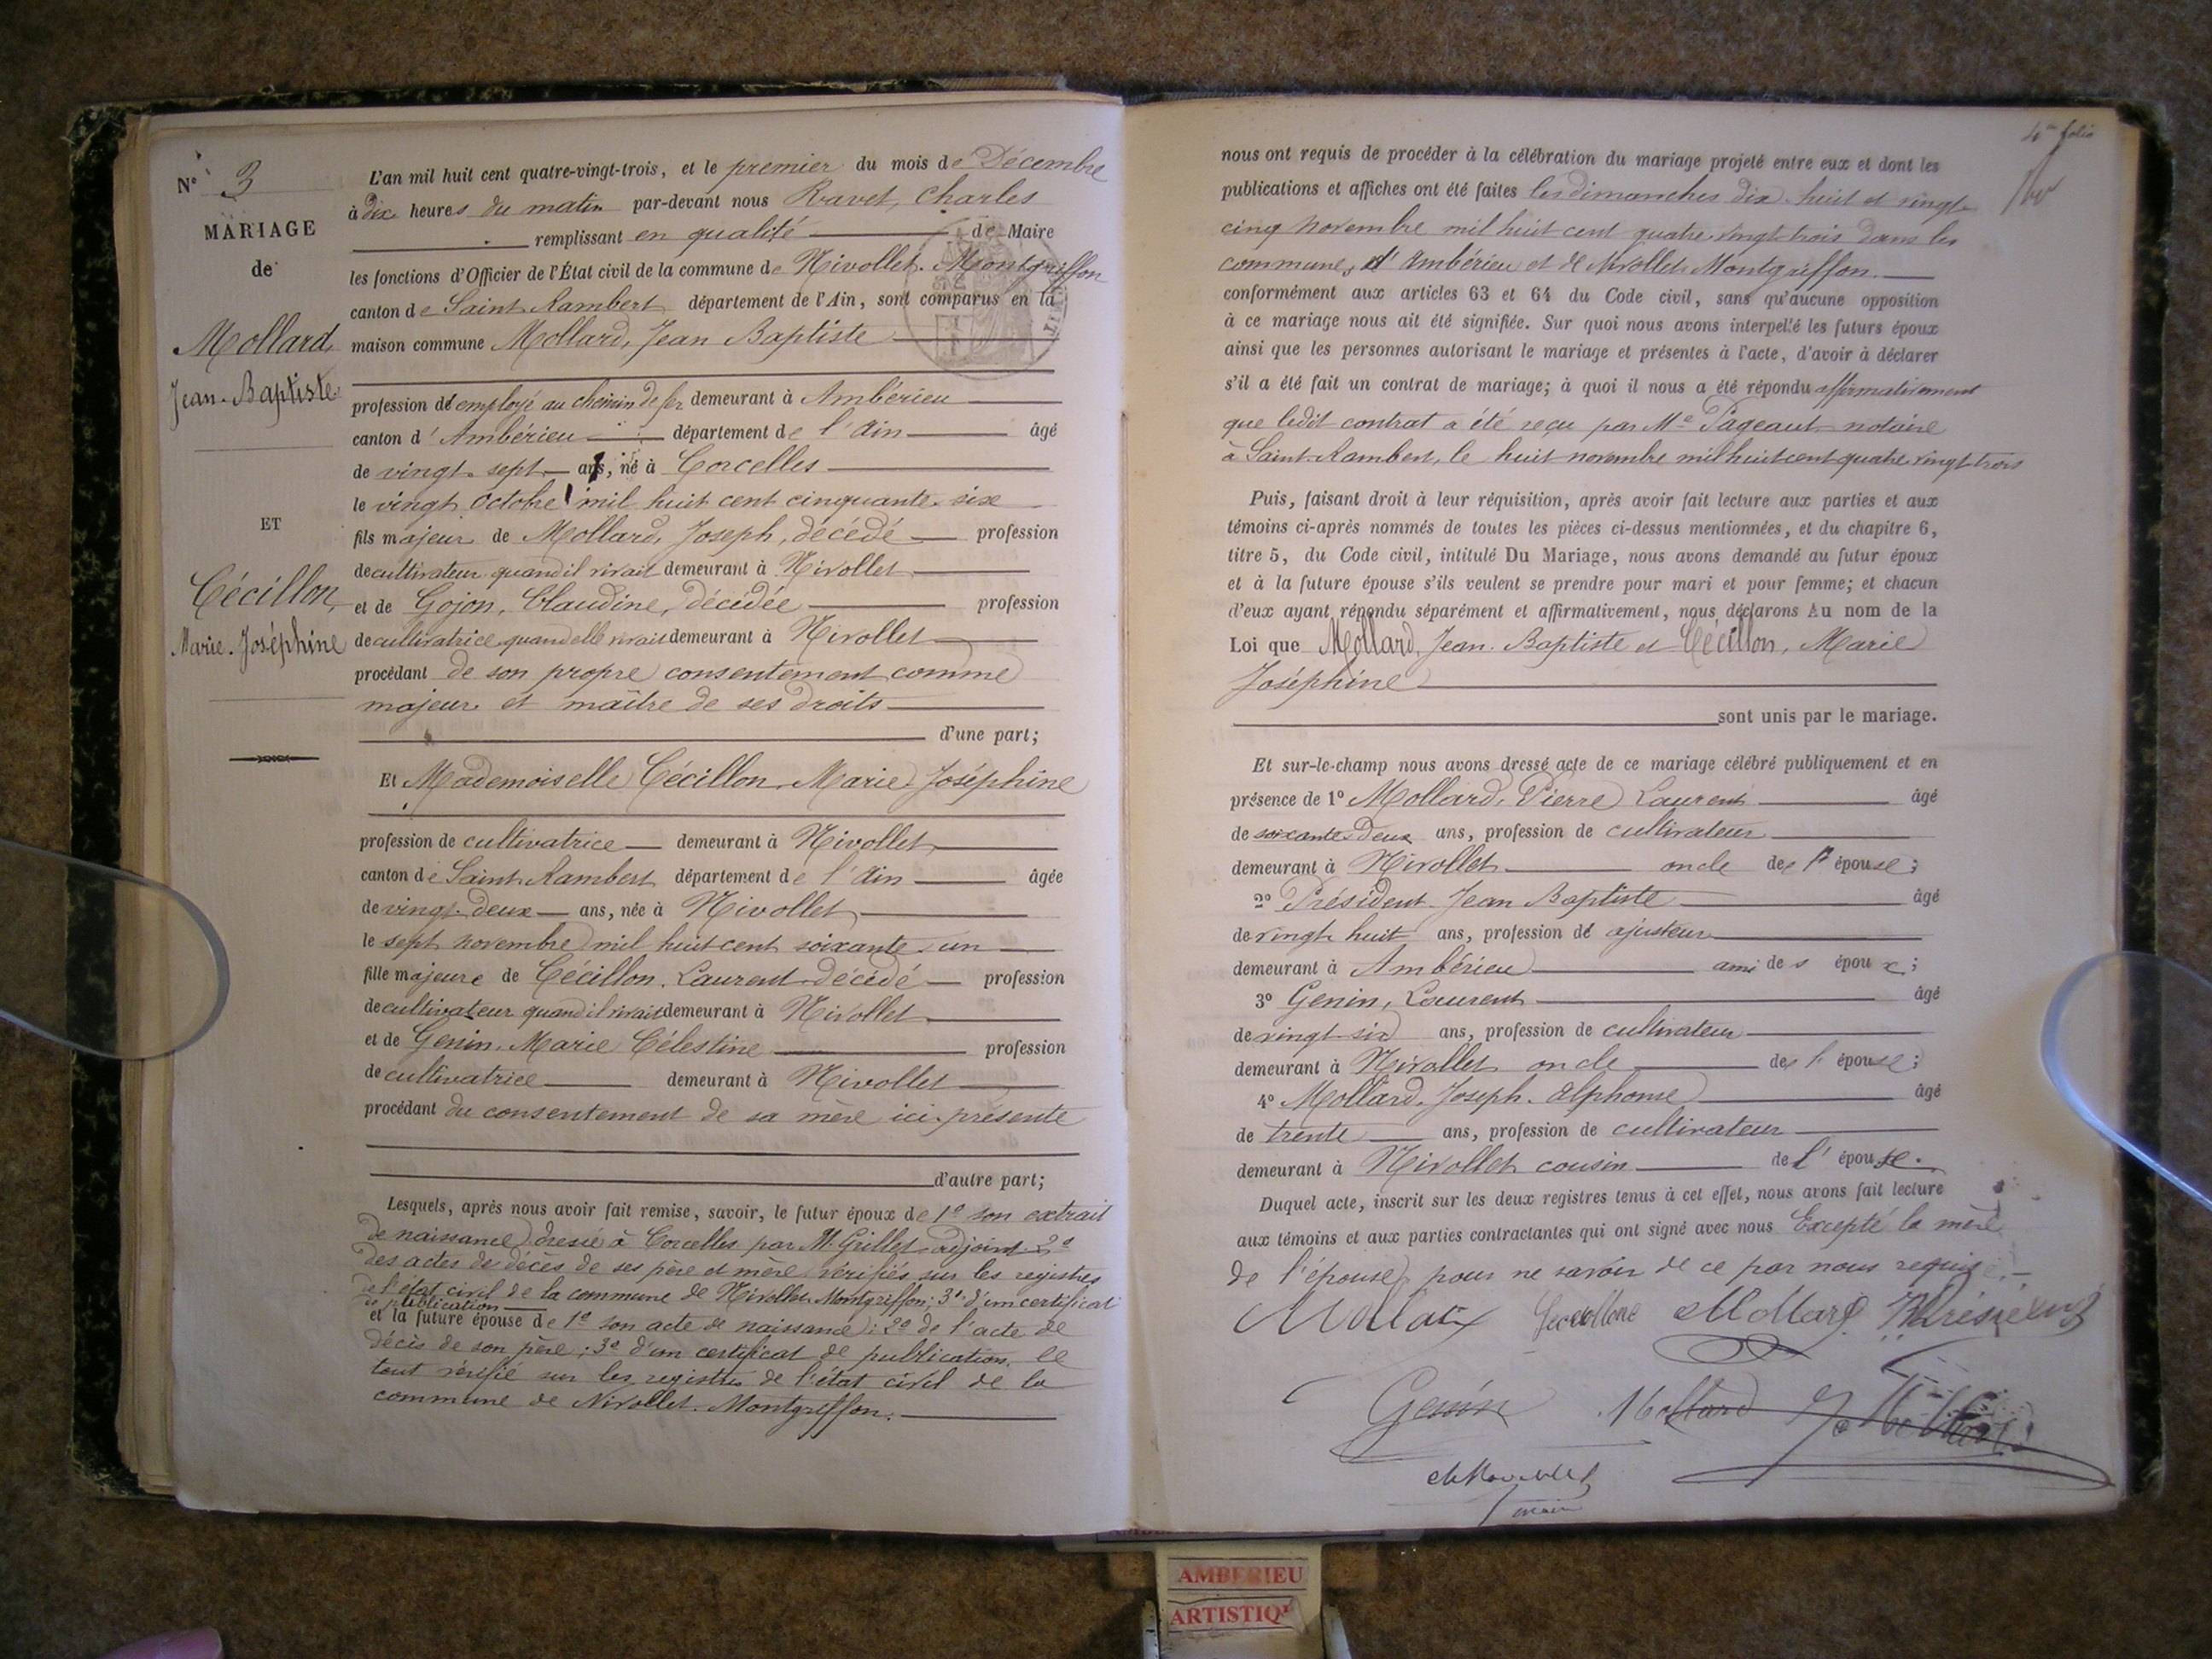 N° 3
MARIAGE
de
Mollard,
Jean-Baptiste
ET
Cécillon,
Marie-Joséphine
L'an mil huit cent quatre-vingt-trois, et le premier du mois de Décembre
à dix heures du matin par-devant nous Ravet, Charles
remplissant en qualité de Maire
les fonctions d'Officier de l'État civil de la commune de Nivollet-Montgriffon
canton de Saint Rambert département de l'Ain, sont comparus en la
maison commune Mollard, Jean Baptiste
profession d'employé au chemin de fer demeurant à Ambérieu
canton d'Ambérieu département de l'Ain âgé
de vingt-sept ans, né à Corcelles
le vingt octobre mil huit cent cinquante-six
fils majeur de Mollard, Joseph, décédé profession
de cultivateur quand il vivait demeurant à Nivollet
et de Gojon, Claudine, décédée profession
de cultivatrice quand elle vivait demeurant à Nivollet
procédant de son propre consentement comme
majeur et maître de ses droits
d'une part;
Et Mademoiselle Cécillon Marie-Joséphine
profession de cultivatrice demeurant à Nivollet
canton de Saint Rambert département de l'Ain âgée
de vingt-deux ans, née à Nivollet
le sept novembre mil huit cent soixante-un
fille majeure de Cécillon, Laurent décédé profession
de cultivateur quand il vivait demeurant à Nivollet
et de Genin, Marie Célestine profession
de cultivatrice demeurant à Nivollet
procédant du consentement de sa mère ici présente
d'autre part;
Lesquels, après nous avoir fait remise, savoir, le futur époux de 1° son extrait
de naissance dressé à Corcelles par M. Grillet adjoint 2°
des actes de décès de ses père et mère vérifiés sur les registres
de l'état civil de la commune de Nivollet-Montgriffon; 3° d'un certificat
de publication
et la future épouse de 1° son acte de naissance; 2° de l'acte de
décès de son père; 3° d'un certificat de publication, le
tout vérifié sur les registres de l'état civil de la
commune de Nivollet-Montgriffon.
4me folio
nous ont requis de procéder à la célébration du mariage projeté entre eux et dont les
publications et affiches ont été faites les dimanches dix-huit et vingt-
cinq novembre mil huit cent quatre vingt trois dans les
communes d'Ambérieu et de Nivollet-Montgriffon.
conformément aux articles 63 et 64 du Code civil, sans qu'aucune opposition
à ce mariage nous ait été signifiée. Sur quoi nous avons interpellé les futurs époux
ainsi que les personnes autorisant le mariage et présentes à l'acte, d'avoir à déclarer
s'il a été fait un contrat de mariage; à quoi il nous a été répondu affirmativement
que ledit contrat a été reçu par Me Pageaut notaire
à Saint-Rambert, le huit novembre mil huit cent quatre vingt-trois
Puis, faisant droit à leur réquisition, après avoir fait lecture aux parties et aux
témoins ci-après nommés de toutes les pièces ci-dessus mentionnées, et du chapitre 6,
titre 5, du Code civil, intitulé Du Mariage, nous avons demandé au futur époux
et à la future épouse s'ils veulent se prendre pour mari et pour femme; et chacun
d'eux ayant répondu séparément et affirmativement, nous déclarons Au nom de la
Loi que Mollard, Jean-Baptiste et Cécillon, Marie
Joséphine
sont unis par le mariage.
Et sur-le-champ nous avons dressé acte de ce mariage célébré publiquement et en
présence de 1° Mollard, Pierre Laurent âgé
de soixante-deux ans, profession de cultivateur
demeurant à Nivollet oncle de l'épouse;
2° Président Jean Baptiste âgé
de vingt huit ans, profession d'ajusteur
demeurant à Ambérieu ami des époux;
3° Genin, Laurent âgé
de vingt-six ans, profession de cultivateur
demeurant à Nivollet oncle de l'épouse;
4° Mollard, Joseph-Alphonse âgé
de trente ans, profession de cultivateur
demeurant à Nivollet cousin de l'épouse.
Duquel acte, inscrit sur les deux registres tenus à cet effet, nous avons fait lecture
aux témoins et aux parties contractantes qui ont signé avec nous Excepté la mère
de l'épouse pour ne savoir de ce par nous requise.
Mollard
Genin Mollard
maire
AMBERIEU
ARTISTIQ